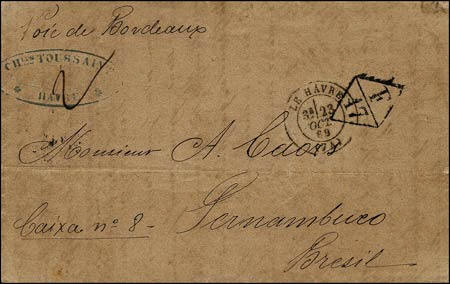 Voie de Bordeaux
CH. TOUSSAINT
HAVRE
2
LE HAVRE
23
OCT
69
Monsieur A. Caors
Caixa nº 8 -
Pernambuco
Bresil